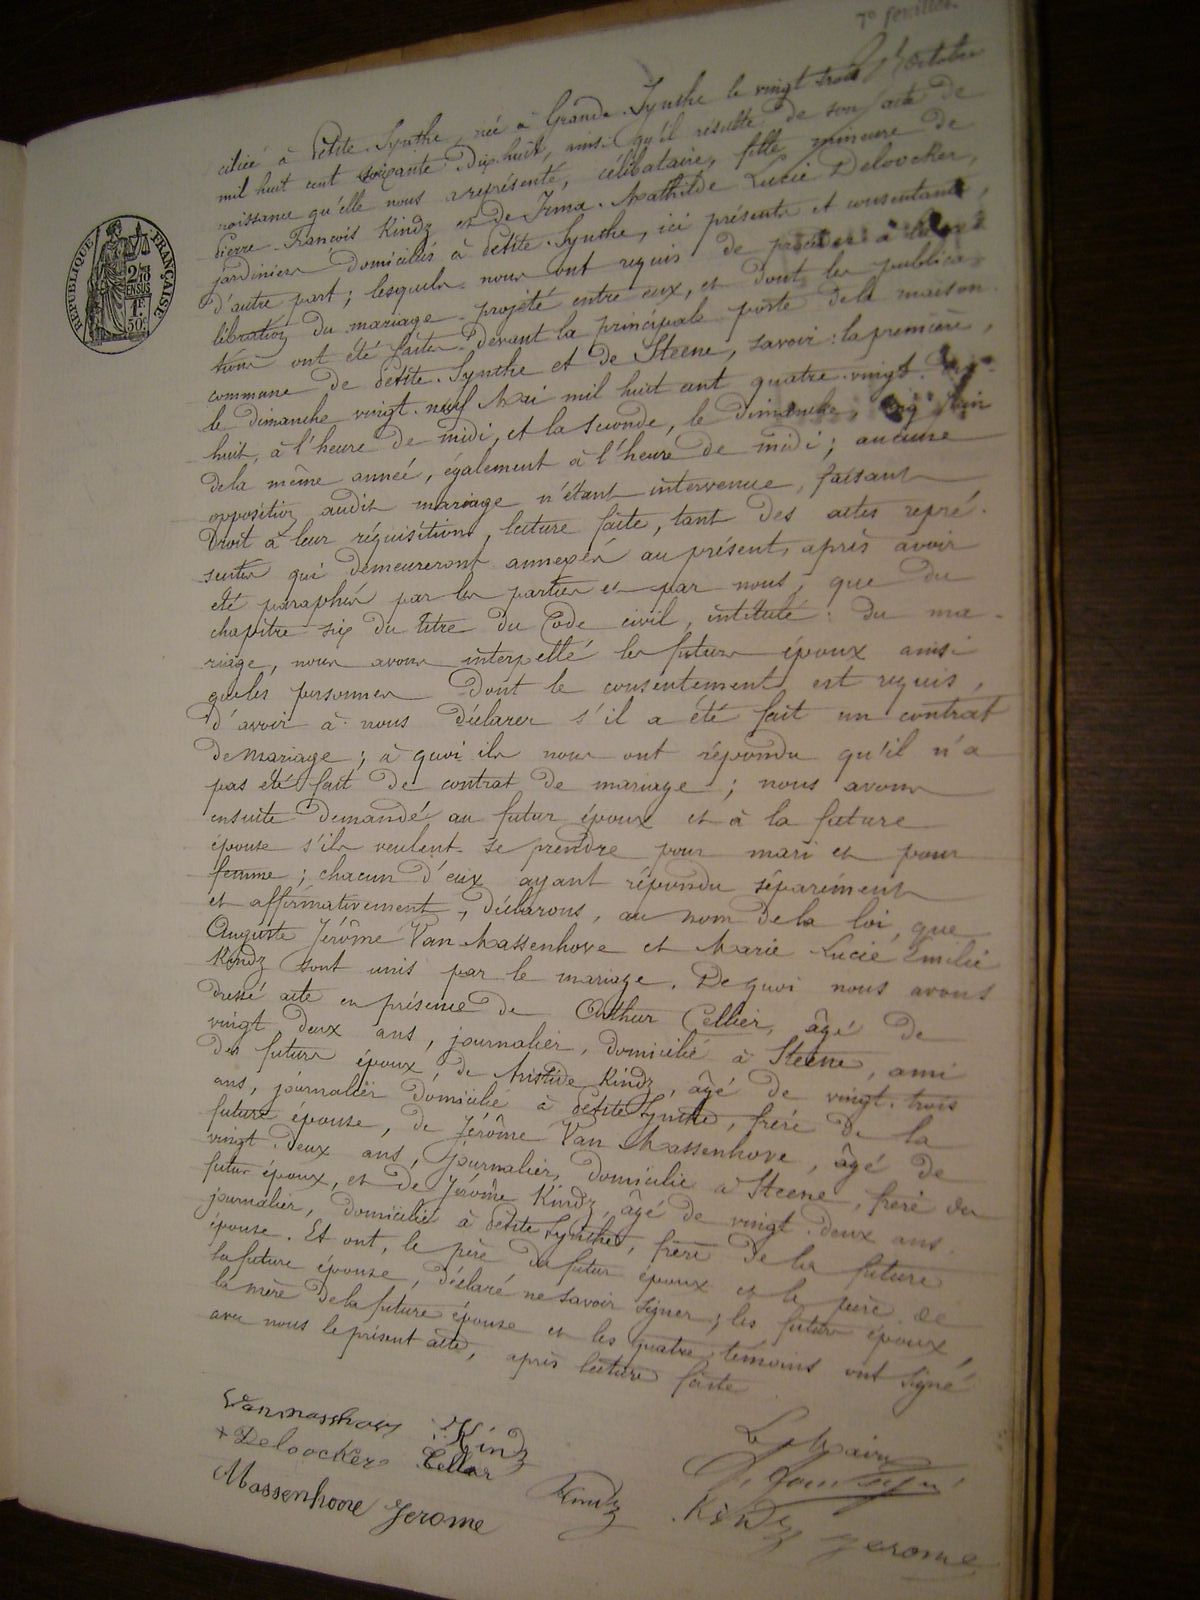 7e feuillet
ciliée à Petite-Synthe, née à Grande-Synthe le vingt trois Octobre
mil huit cent soixante-Dix-huit, ainsi qu'il résulte de son acte de
naissance qu'elle nous a représenté, célibataire, fille mineure de
Pierre-François Kindz et de Irma-Mathilde Lucie Deloocker,
jardiniers domiciliés à Petite-Synthe, ici présents et consentants,
d'autre part; lesquels nous ont requis de procéder à la cé-
lébration du mariage projeté entre eux, et dont les publica-
tions ont été faites devant la principale porte de la maison
commune de Petite-Synthe et de Steene, savoir: la première,
le dimanche vingt-neuf Mai mil huit cent quatre-vingt-Dix-
huit, à l'heure de midi, et la seconde, le dimanche, cinq Juin
de la même année, également à l'heure de midi; aucune
opposition audit mariage n'étant intervenue, faisant
Droit à leur réquisition, lecture faite, tant des actes repré-
sentés qui demeureront annexés au présent, après avoir
été paraphés par les parties et par nous, que du
chapitre six du titre du Code civil, intitulé: Du ma-
riage, nous avons interpellé les futurs époux ainsi
que les personnes dont le consentement est requis,
d'avoir à nous déclarer s'il a été fait un contrat
de mariage; à quoi ils nous ont répondu qu'il n'a
pas été fait de contrat de mariage; nous avons
ensuite demandé au futur époux et à la future
épouse s'ils veulent se prendre pour mari et pour
femme; chacun d'eux ayant répondu séparément
et affirmativement, déclarons, au nom de la loi, que
Auguste Jérôme Van Massenhove et Marie Lucie Emilie
Kindz sont unis par le mariage. De quoi nous avons
dressé acte en présence de Arthur Cellier, âgé de
vingt deux ans, journalier, domicilié à Steene, ami
des futurs époux, de Aristide Kindz, âgé de vingt-trois
ans, journalier domicilié à Petite Synthe, frère de la
future épouse, de Jérôme Van Massenhove, âgé de
vingt-deux ans, journalier, domicilié à Steene, frère du
futur époux, et de Jérôme Kindz, âgé de vingt-deux ans
journalier, domicilié à Petite Synthe, frère de la future
épouse. Et ont, le père du futur époux et le père de
la future épouse, déclaré ne savoir signer; les futurs époux,
la mère de la future épouse et les quatre témoins ont signé
avec nous le présent acte, après lecture faite
Vanmasshove Kindz
+ Deloocker Cellier
Massenhove Jerome
Kindz
Le Maire
Kindz Jerome
RÉPUBLIQUE FRANÇAISE
2/10 EN SUS
1F. 50c.